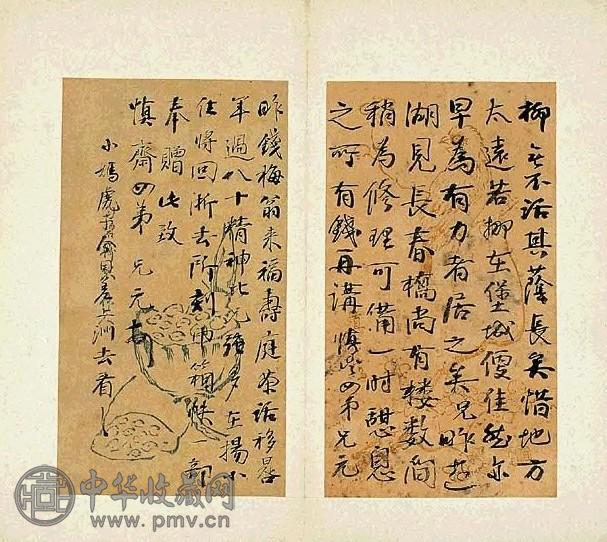 柳無不活其蔭長矣惜地方
太遠若挪在堡城便佳然亦
早為有力者居之矣兄昨遊
湖見長春橋尚有楼數间
稍為修理可備一时憩息
之所有錢再講 四弟兄元
昨錢梅翁来福壽庭茶話移晷
年過八十精神 在揚小
住將回浙去所刻 帖一部
奉贈此致
慎齋四弟兄元
小 虎 去看
中华收藏网
www.pmv.cn